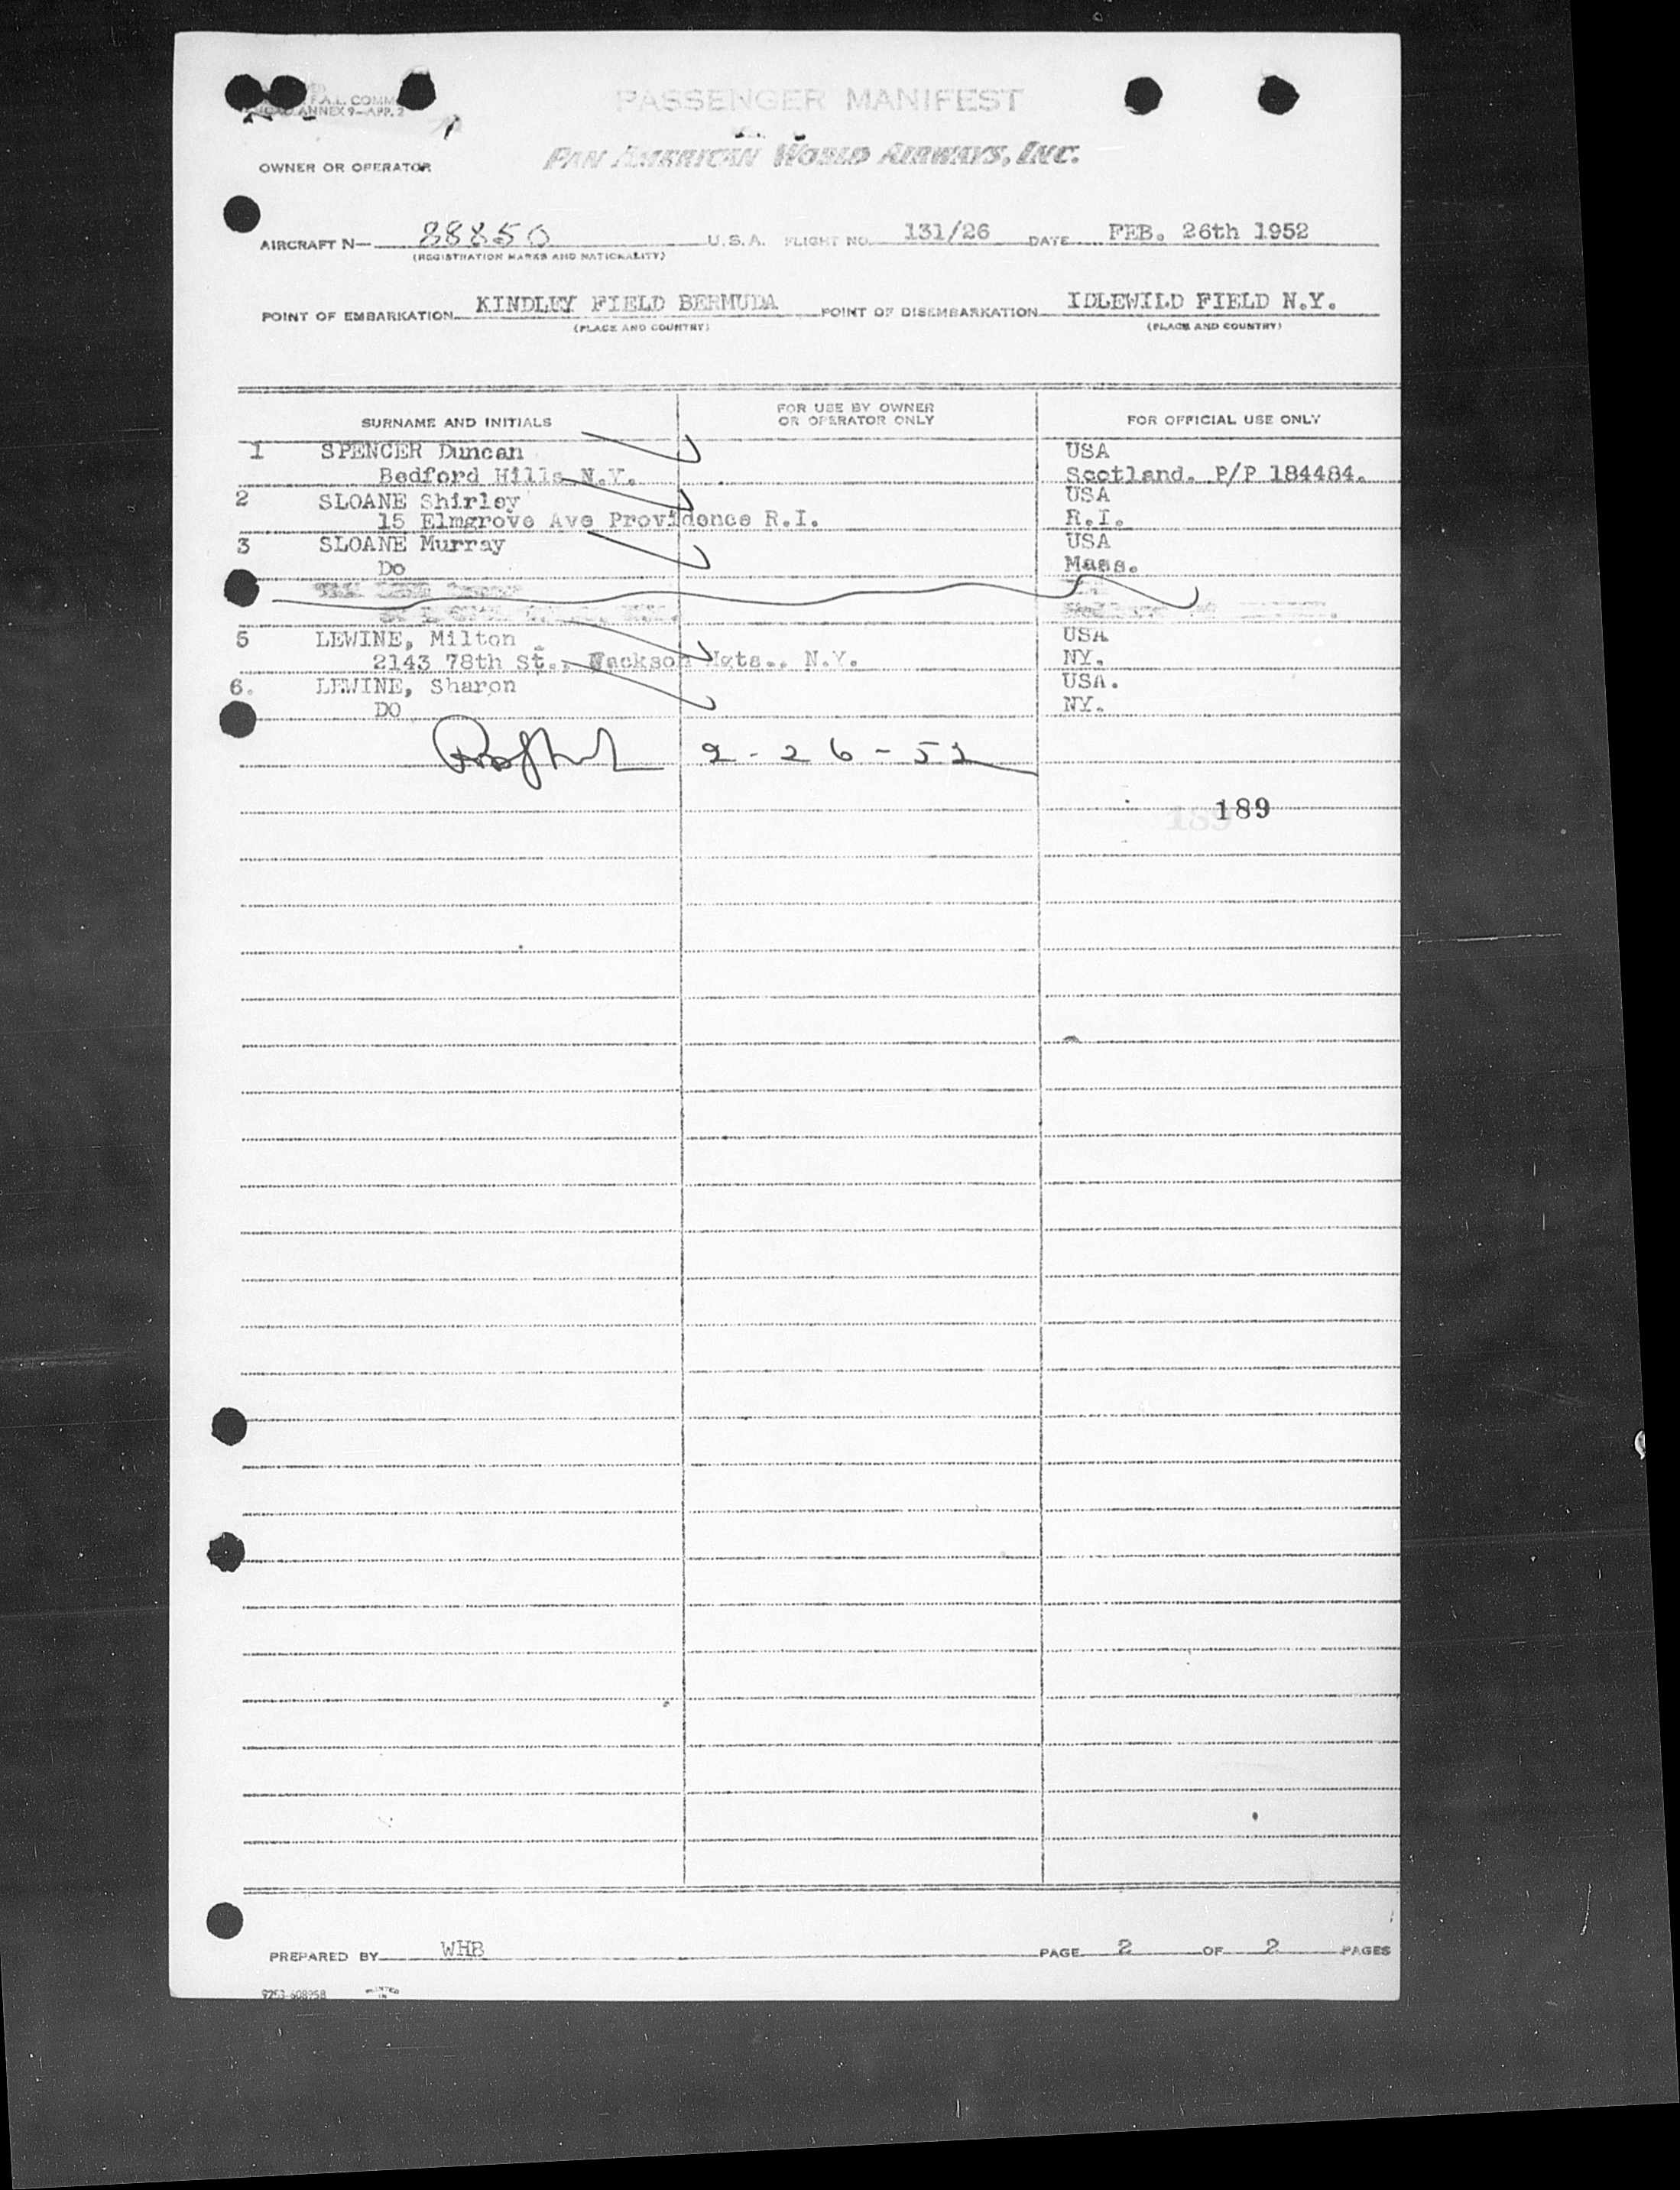 F.A.L. COMM
ANNEX 9—APP. 2
PASSENGER MANIFEST
OWNER OR OPERATOR PAN AMERICAN WORLD AIRWAYS, INC.
AIRCRAFT N— 88850 U.S.A. FLIGHT NO. 131/26 DATE FEB. 26th 1952
(REGISTRATION MARKS AND NATIONALITY)
POINT OF EMBARKATION KINDLEY FIELD BERMUDA POINT OF DISEMBARKATION IDLEWILD FIELD N.Y.
(PLACE AND COUNTRY) (PLACE AND COUNTRY)
SURNAME AND INITIALS FOR USE BY OWNER OR OPERATOR ONLY FOR OFFICIAL USE ONLY
1 SPENCER Duncan USA
Bedford Hills N.Y. Scotland. P/P 184484.
2 SLOANE Shirley USA
15 Elmgrove Ave Providence R.I. R.I.
3 SLOANE Murray USA
Do Mass.
5 LEWINE, Milton USA
2143 78th St., Jackson Hgts., N.Y. NY.
6. LEWINE, Sharon USA.
DO NY.
2-26-52
189
PREPARED BY WHB PAGE 2 OF 2 PAGES
9253-608958 PRINTED IN